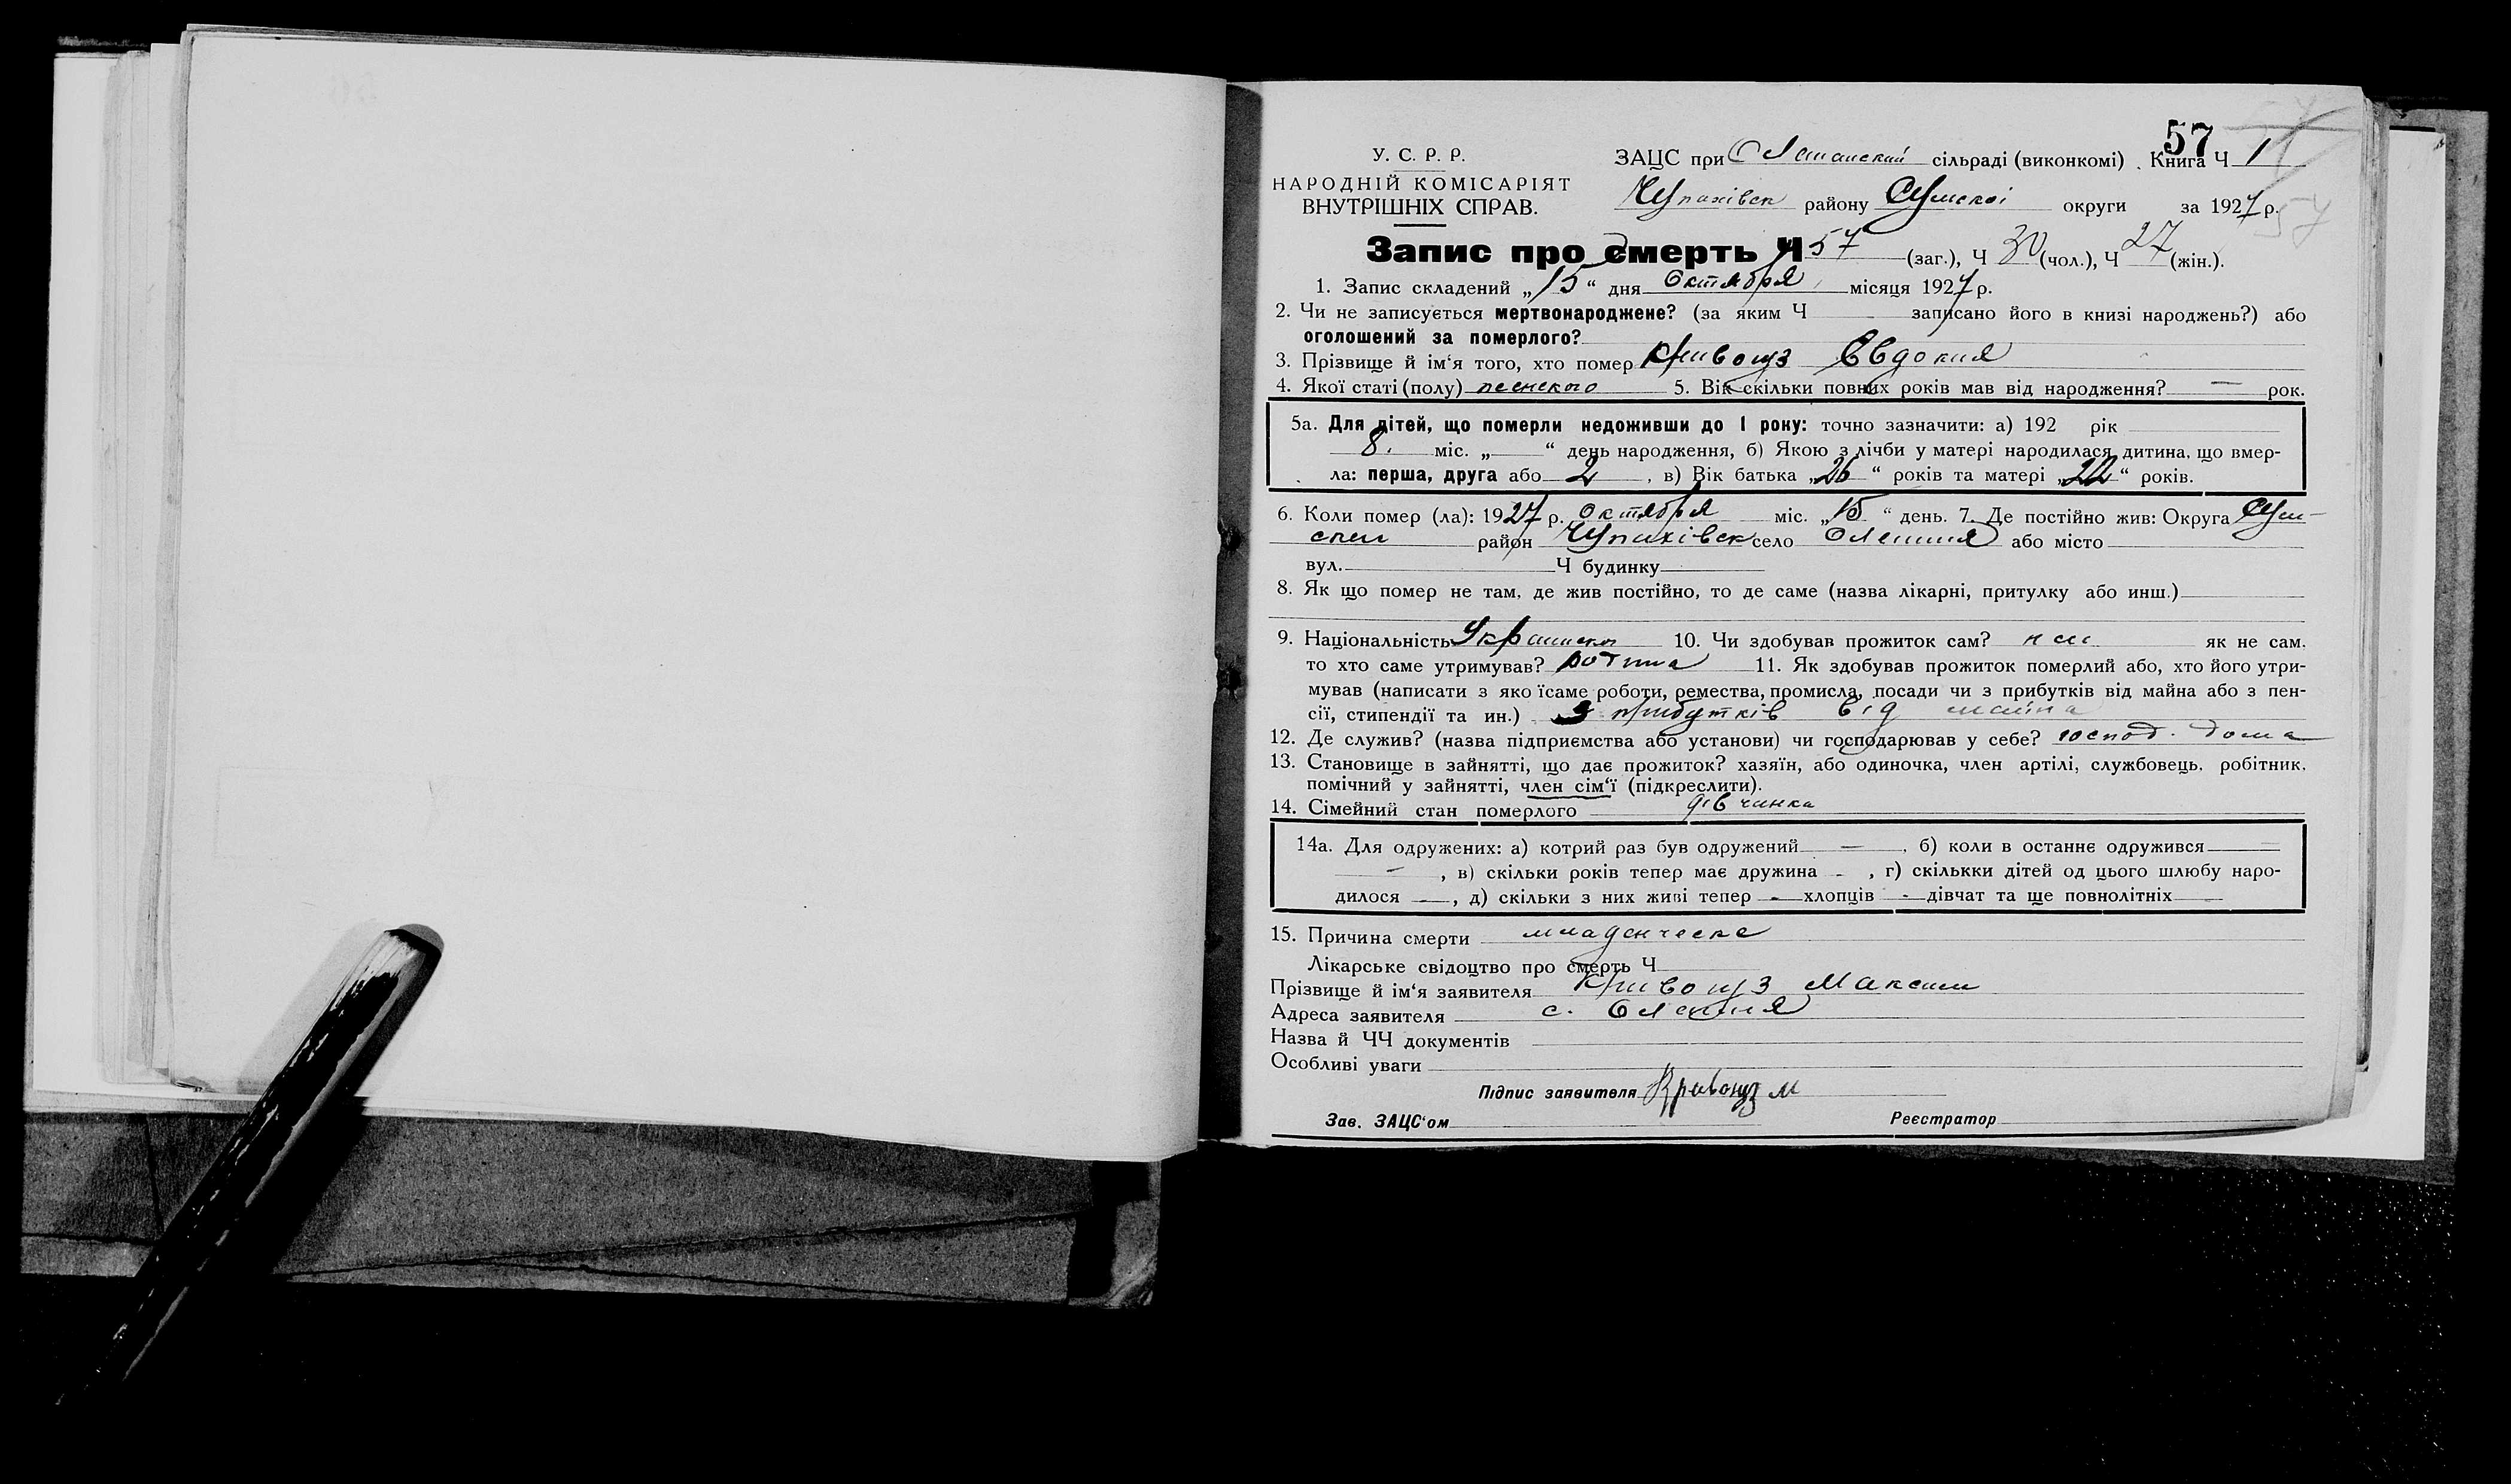 57
У. С. Р. Р.
НАРОДНІЙ КОМІСАРІЯТ
ВНУТРІШНІХ СПРАВ.
ЗАЦС при сільраді (виконкомі) . Книга Ч 1
Чупахівск району Сумскої округи за 1927 р.
Запис про смерть Ч 57 (заг.), Ч 30 (чол.), Ч 27 (жін.).
1. Запис складений „15“ дня Октября місяця 1927 р.
2. Чи не записується мертвонароджене? (за яким Ч записано його в книзі народжень?) або
оголошений за померлого?
3. Прізвище й ім‘я того, хто помер Кривощз Євдокия
4. Якої статі (полу) 5. Вік скільки повних років мав від народження? — рок.
5а. Для дітей, що померли недоживши до 1 року: точно зазначити: а) 192 рік
8. міс. „ “ день народження, б) Якою з лічби у матері народилася дитина, що вмер-
ла: перша, друга або 2 , в) Вік батька „26“ років та матері „22“ років.
6. Коли помер (ла): 1927 р. октября міс. „15“ день. 7. Де постійно жив: Округа Сум-
ска район Чупахівск село Олешня або місто
вул. Ч будинку
8. Як що помер не там, де жив постійно, то де саме (назва лікарні, притулку або инш.)
9. Національність 10. Чи здобував прожиток сам? як не сам,
то хто саме утримував? родина 11. Як здобував прожиток померлий або, хто його утри-
мував (написати з яко їсаме роботи, ремества, промисла, посади чи з прибутків від майна або з пен-
сії, стипендії та ин.) З прибутків від майна
12. Де служив? (назва підприємства або установи) чи господарював у себе? господ. дома
13. Становище в зайнятті, що дає прожиток? хазяїн, або одиночка, член артілі, службовець, робітник,
помічний у зайнятті, член сім‘ї (підкреслити).
14. Сімейний стан померлого дівчинка
14а. Для одружених: а) котрий раз був одружений — , б) коли в останнє одружився —
— , в) скільки років тепер має дружина - , г) скількки дітей од цього шлюбу наро-
дилося — , д) скільки з них живі тепер - хлопців - дівчат та ще повнолітніх
15. Причина смерти младенческа
Лікарське свідоцтво про смерть Ч
Прізвище й ім‘я заявителя Кривощз Максим
Адреса заявителя с. Олешня
Назва й ЧЧ документів
Особливі уваги
Підпис заявителя Кривощз М
Зав. ЗАЦС‘ом Реєстратор